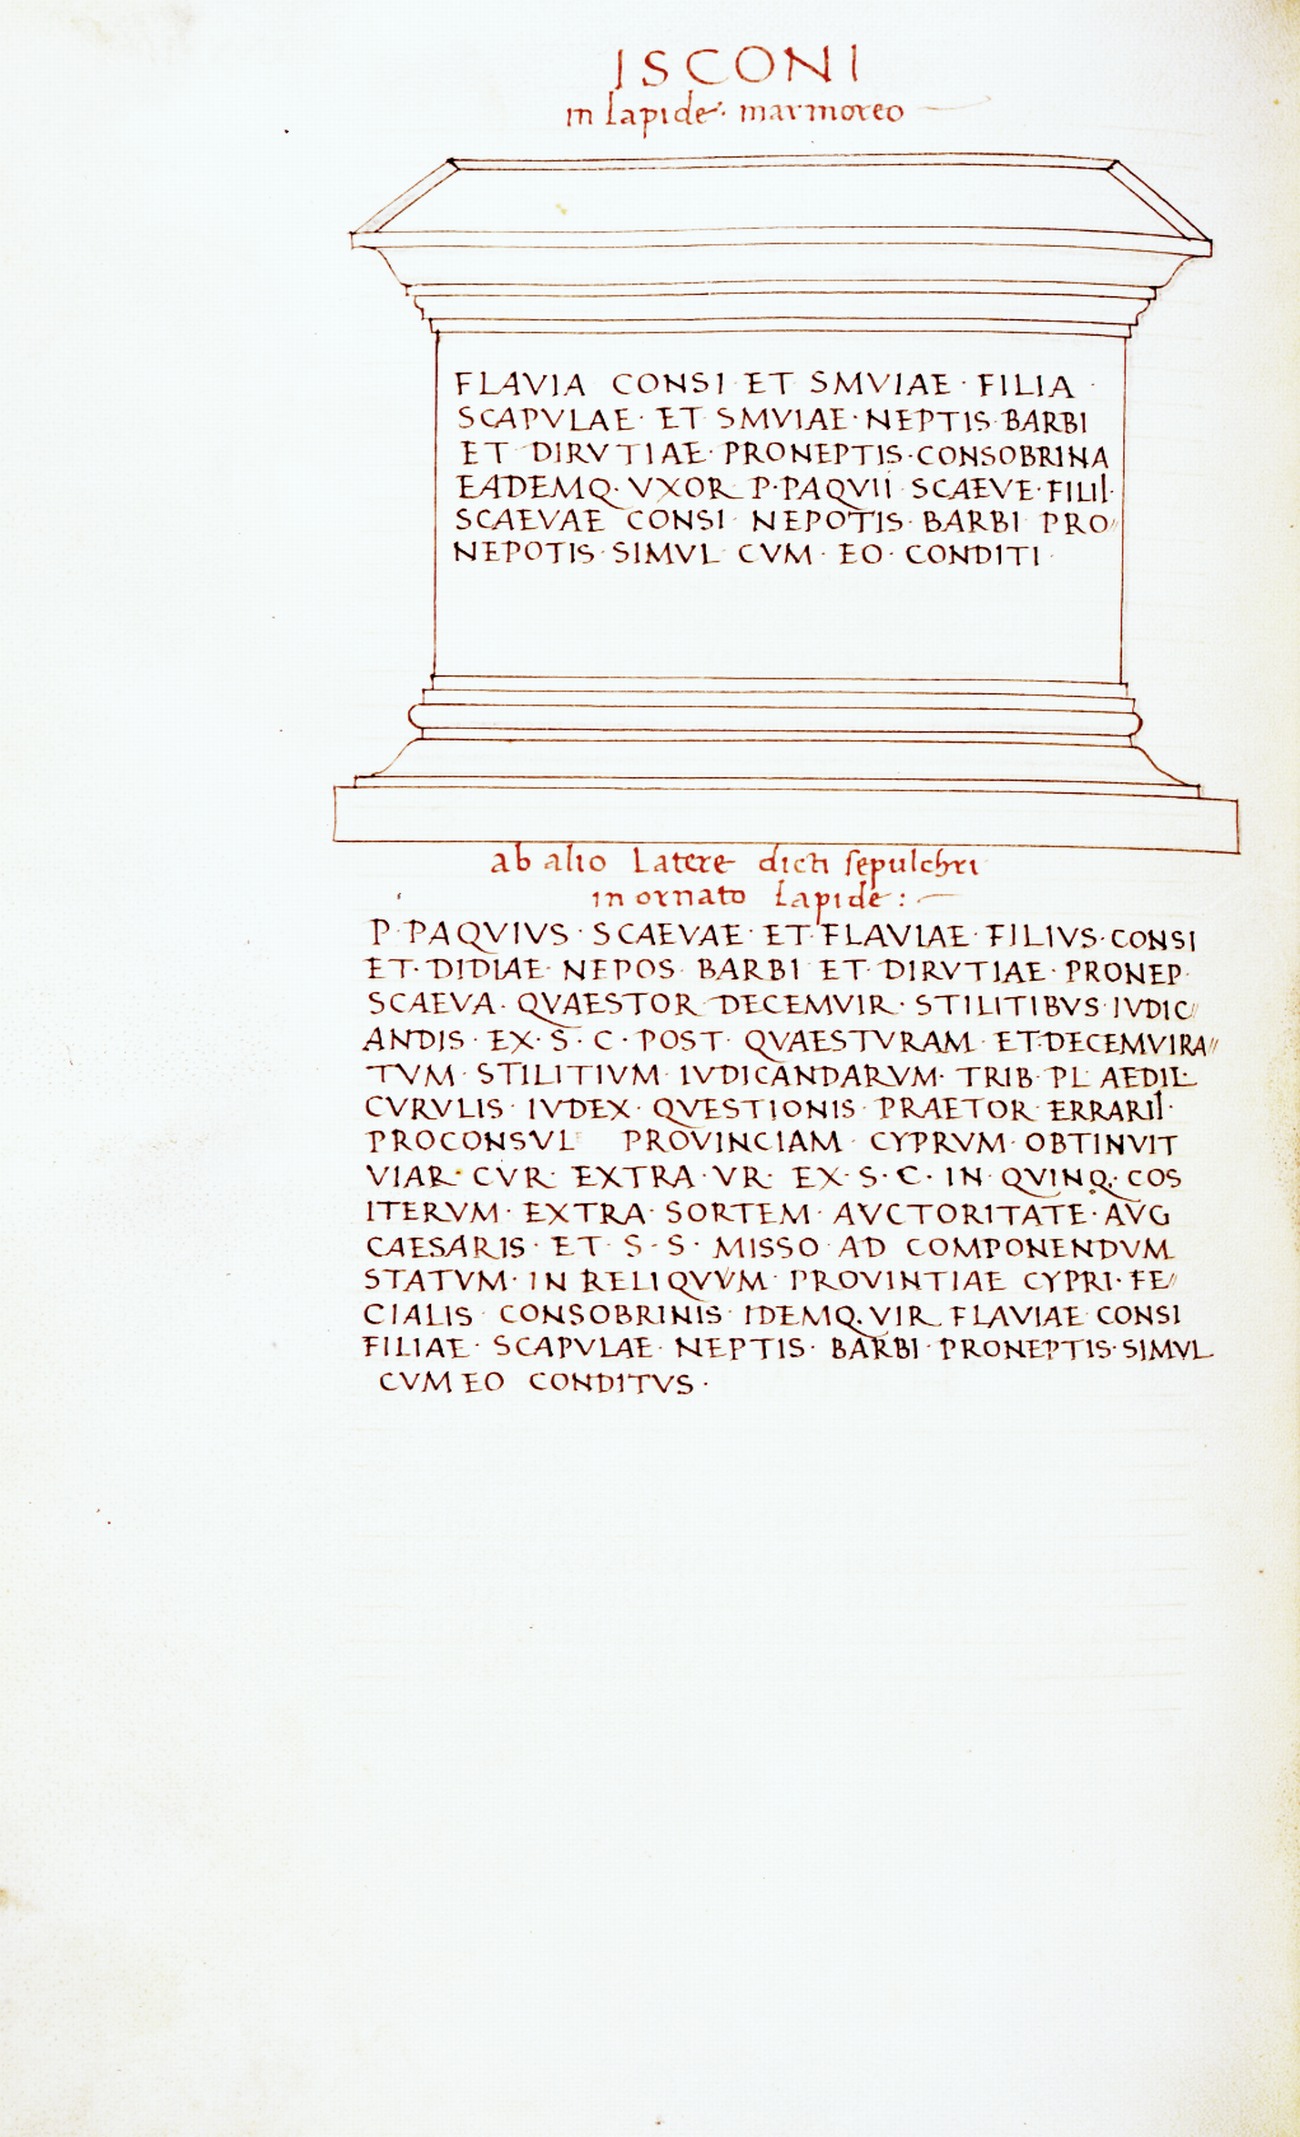 JSCONI
in lapide: marmoreo
FLAVIA CONSI ET SMVIAE · FILIA ·
SCAPVLAE · ET SMVIAE · NEPTIS · BARBI
ET DIRVTIAE · PRONEPTIS · CONSOBRINA
EADEMQ · VXOR P · PAQVII SCAEVE · FILII ·
SCAEVAE CONSI · NEPOTIS · BARBI PRO//
NEPOTIS · SIMVL CVM · EO · CONDITI ·
ab alio Latere dicti sepulchri
in ornato Lapide :
P · PAQVIVS · SCAEVAE · ET · FLAVIAE · FILIVS · CONSI
ET · DIDIAE · NEPOS BARBI ET · DIRVTIAE · PRONEP ·
SCAEVA · QVAESTOR DECEMVIR · STILITIBVS · IVDIC//
ANDIS · EX · S · C · POST · QVAESTVRAM · ET · DECEMVIRA//
TVM · STILITIVM IVDICANDARVM · TRIB · PL AEDIL
CVRVLIS · IVDEX · QVESTIONIS · PRAETOR · ERRARII ·
PROCONSVL PROVINCIAM · CYPRVM · OBTINVIT
VIAR · CVR · EXTRA · VR · EX · S · C · IN · QVINQ · COS
ITERVM · EXTRA · SORTEM · AVCTORITATE · AVG
CAESARIS · ET · S · S · MISSO · AD COMPONENDVM
STATVM · IN RELIQVVM · PROVINTIAE CYPRI · FE//
CIALIS CONSOBRINIS · IDEMQ · VIR FLAVIAE CONSI
FILIAE · SCAPVLAE · NEPTIS · BARBI · PRONEPTIS · SIMVL
CVM EO CONDITVS ·